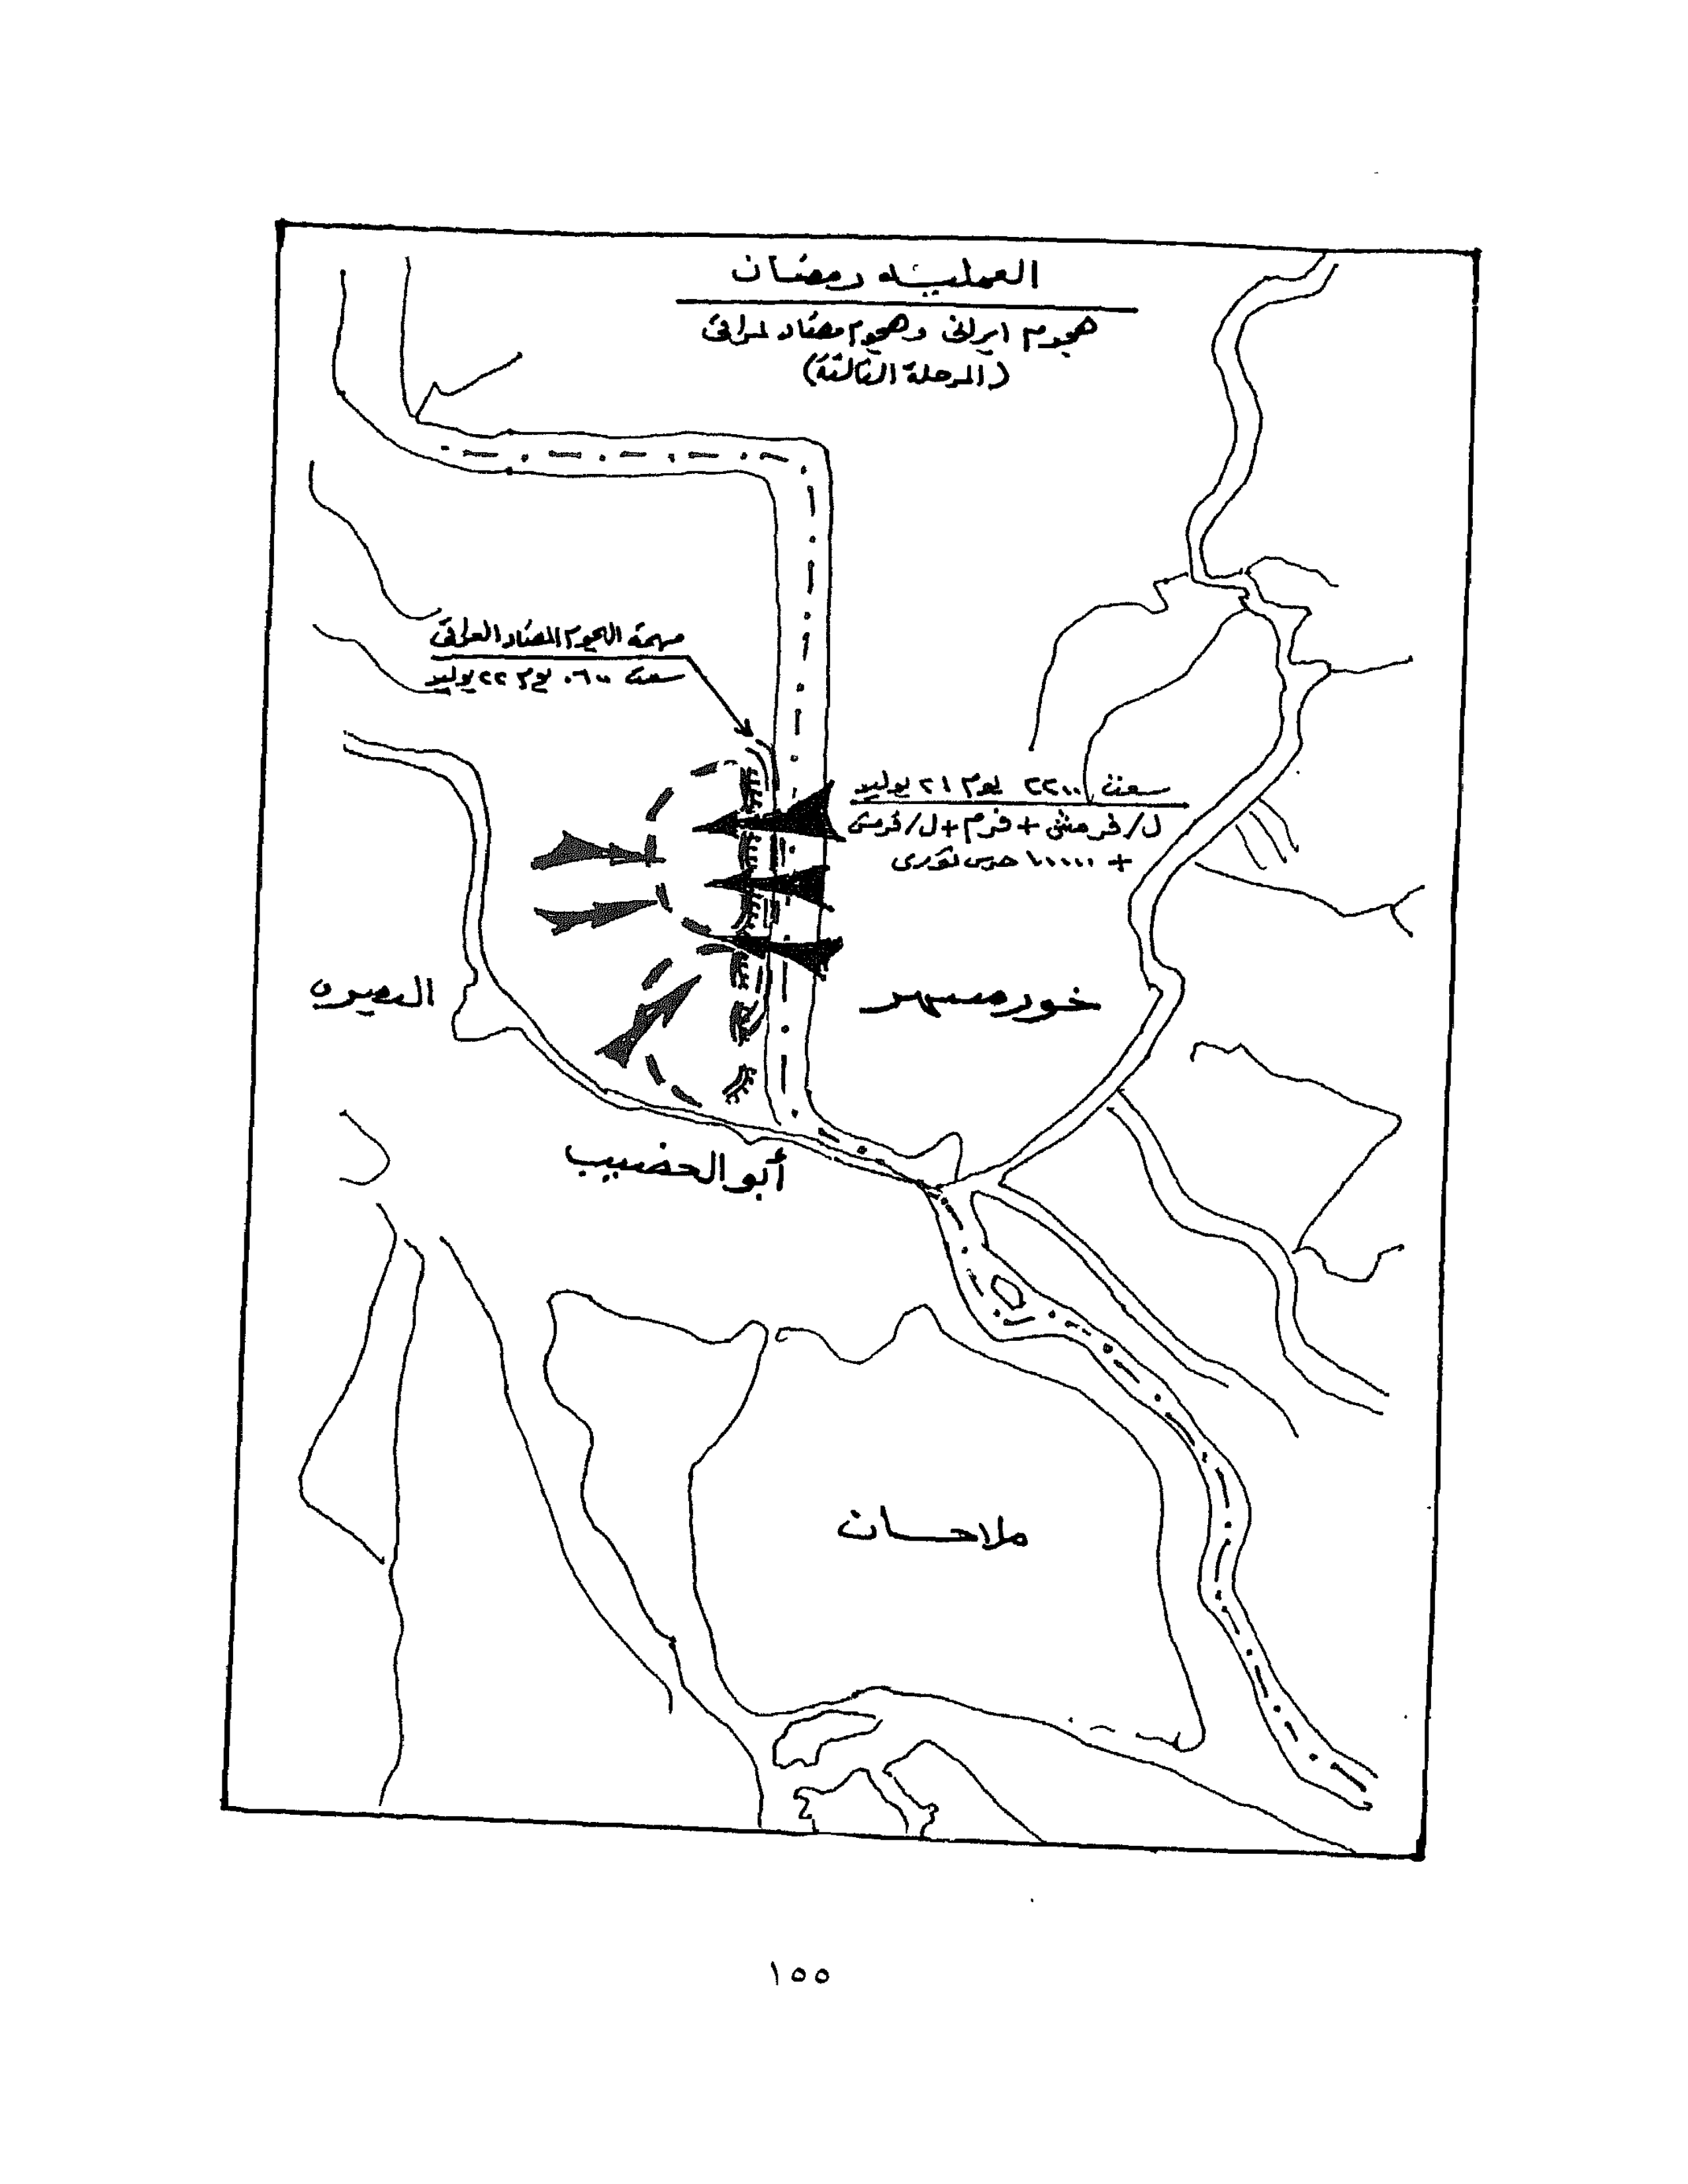 العمليه رمضان
هجوم ايرانى وهجوم مضاد لعراقى
(المرحلة الثالثة)
مهمة الهجوم المضاد العراقى
سعت ٠٦٠٠ يوم ٢٢ يوليه
سعت ٢٢٠٠ يوم ٢١ يوليه
ل/فرمش + فرم + ل/فرمش
+ ١٠٠٠٠ حرس ثورى
البصره
خورمسهر
أبو الحضيب
ملاحات
١٥٥